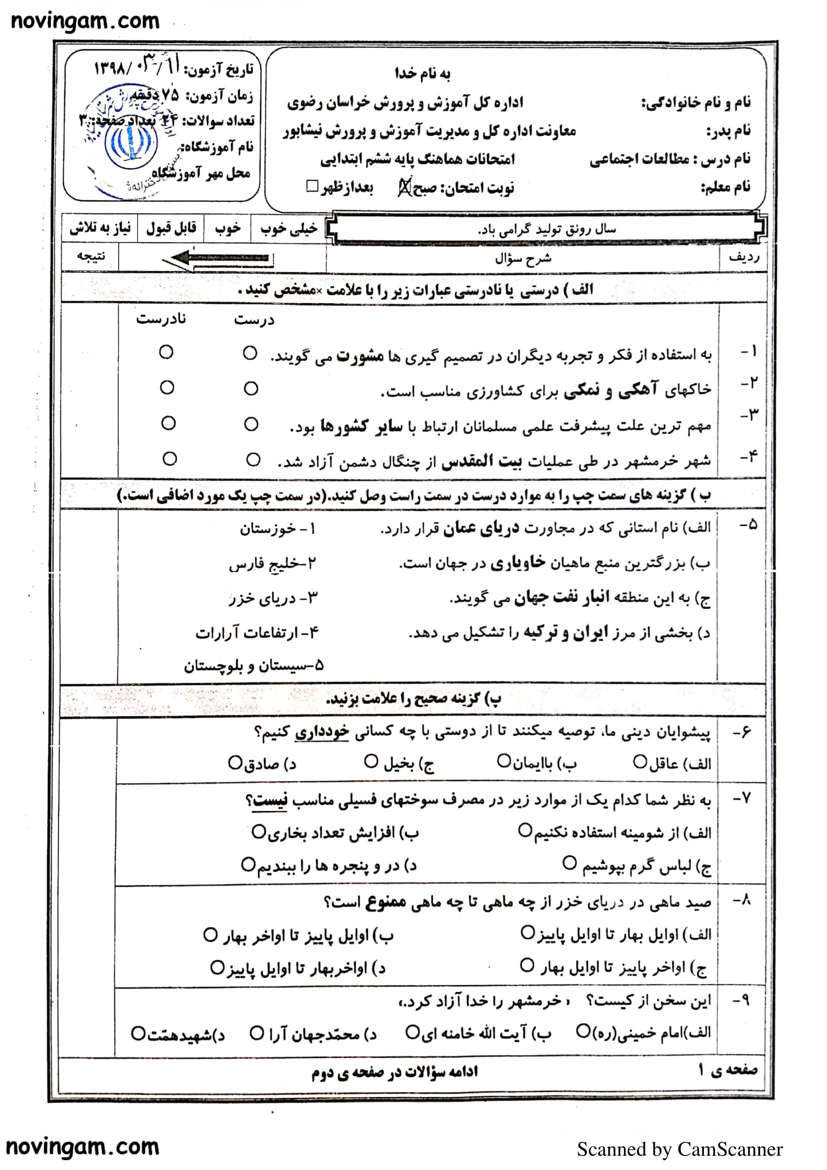 novingam.com
به نام خدا
نام و نام خانوادگی: اداره کل آموزش و پرورش خراسان رضوی
نام پدر: معاونت اداره کل و مدیریت آموزش و پرورش نیشابور
نام درس : مطالعات اجتماعی امتحانات هماهنگ پایه ششم ابتدایی
نام معلم: نوبت امتحان: صبح بعدازظهر
تاریخ آزمون: ۱۳۹۸/۰۳/
زمان آزمون: ۷۵ دقیقه
تعداد سوالات: ۲۴ تعداد صفحه: ۳
نام آموزشگاه:
محل مهر آموزشگاه
سال رونق تولید گرامی باد. خیلی خوب خوب قابل قبول نیاز به تلاش
ردیف شرح سؤال نتیجه
الف ) درستی یا نادرستی عبارات زیر را با علامت ×مشخص کنید .
درست نادرست
۱- به استفاده از فکر و تجربه دیگران در تصمیم گیری ها مشورت می گویند.
۲- خاکهای آهکی و نمکی برای کشاورزی مناسب است.
۳- مهم ترین علت پیشرفت علمی مسلمانان ارتباط با سایر کشورها بود.
۴- شهر خرمشهر در طی عملیات بیت المقدس از چنگال دشمن آزاد شد.
ب ) گزینه های سمت چپ را به موارد درست در سمت راست وصل کنید.(در سمت چپ یک مورد اضافی است.)
۵- الف) نام استانی که در مجاورت دریای عمان قرار دارد. ۱- خوزستان
ب) بزرگترین منبع ماهیان خاویاری در جهان است. ۲-خلیج فارس
ج) به این منطقه انبار نفت جهان می گویند. ۳- دریای خزر
د) بخشی از مرز ایران و ترکیه را تشکیل می دهد. ۴- ارتفاعات آرارات
۵-سیستان و بلوچستان
پ) گزینه صحیح را علامت بزنید.
۶- پیشوایان دینی ما، توصیه میکنند تا از دوستی با چه کسانی خودداری کنیم؟
الف) عاقل ب) باایمان ج) بخیل د) صادق
۷- به نظر شما کدام یک از موارد زیر در مصرف سوختهای فسیلی مناسب نیست؟
الف) از شومینه استفاده نکنیم ب) افزایش تعداد بخاری
ج) لباس گرم بپوشیم د) در و پنجره ها را ببندیم
۸- صید ماهی در دریای خزر از چه ماهی تا چه ماهی ممنوع است؟
الف) اوایل بهار تا اوایل پاییز ب) اوایل پاییز تا اواخر بهار
ج) اواخر پاییز تا اوایل بهار د) اواخربهار تا اوایل پاییز
۹- این سخن از کیست؟ « خرمشهر را خدا آزاد کرد.»
الف)امام خمینی(ره) ب) آیت الله خامنه ای د) محمّدجهان آرا د)شهیدهمّت
صفحه ی ۱ ادامه سؤالات در صفحه ی دوم
novingam.com
Scanned by CamScanner